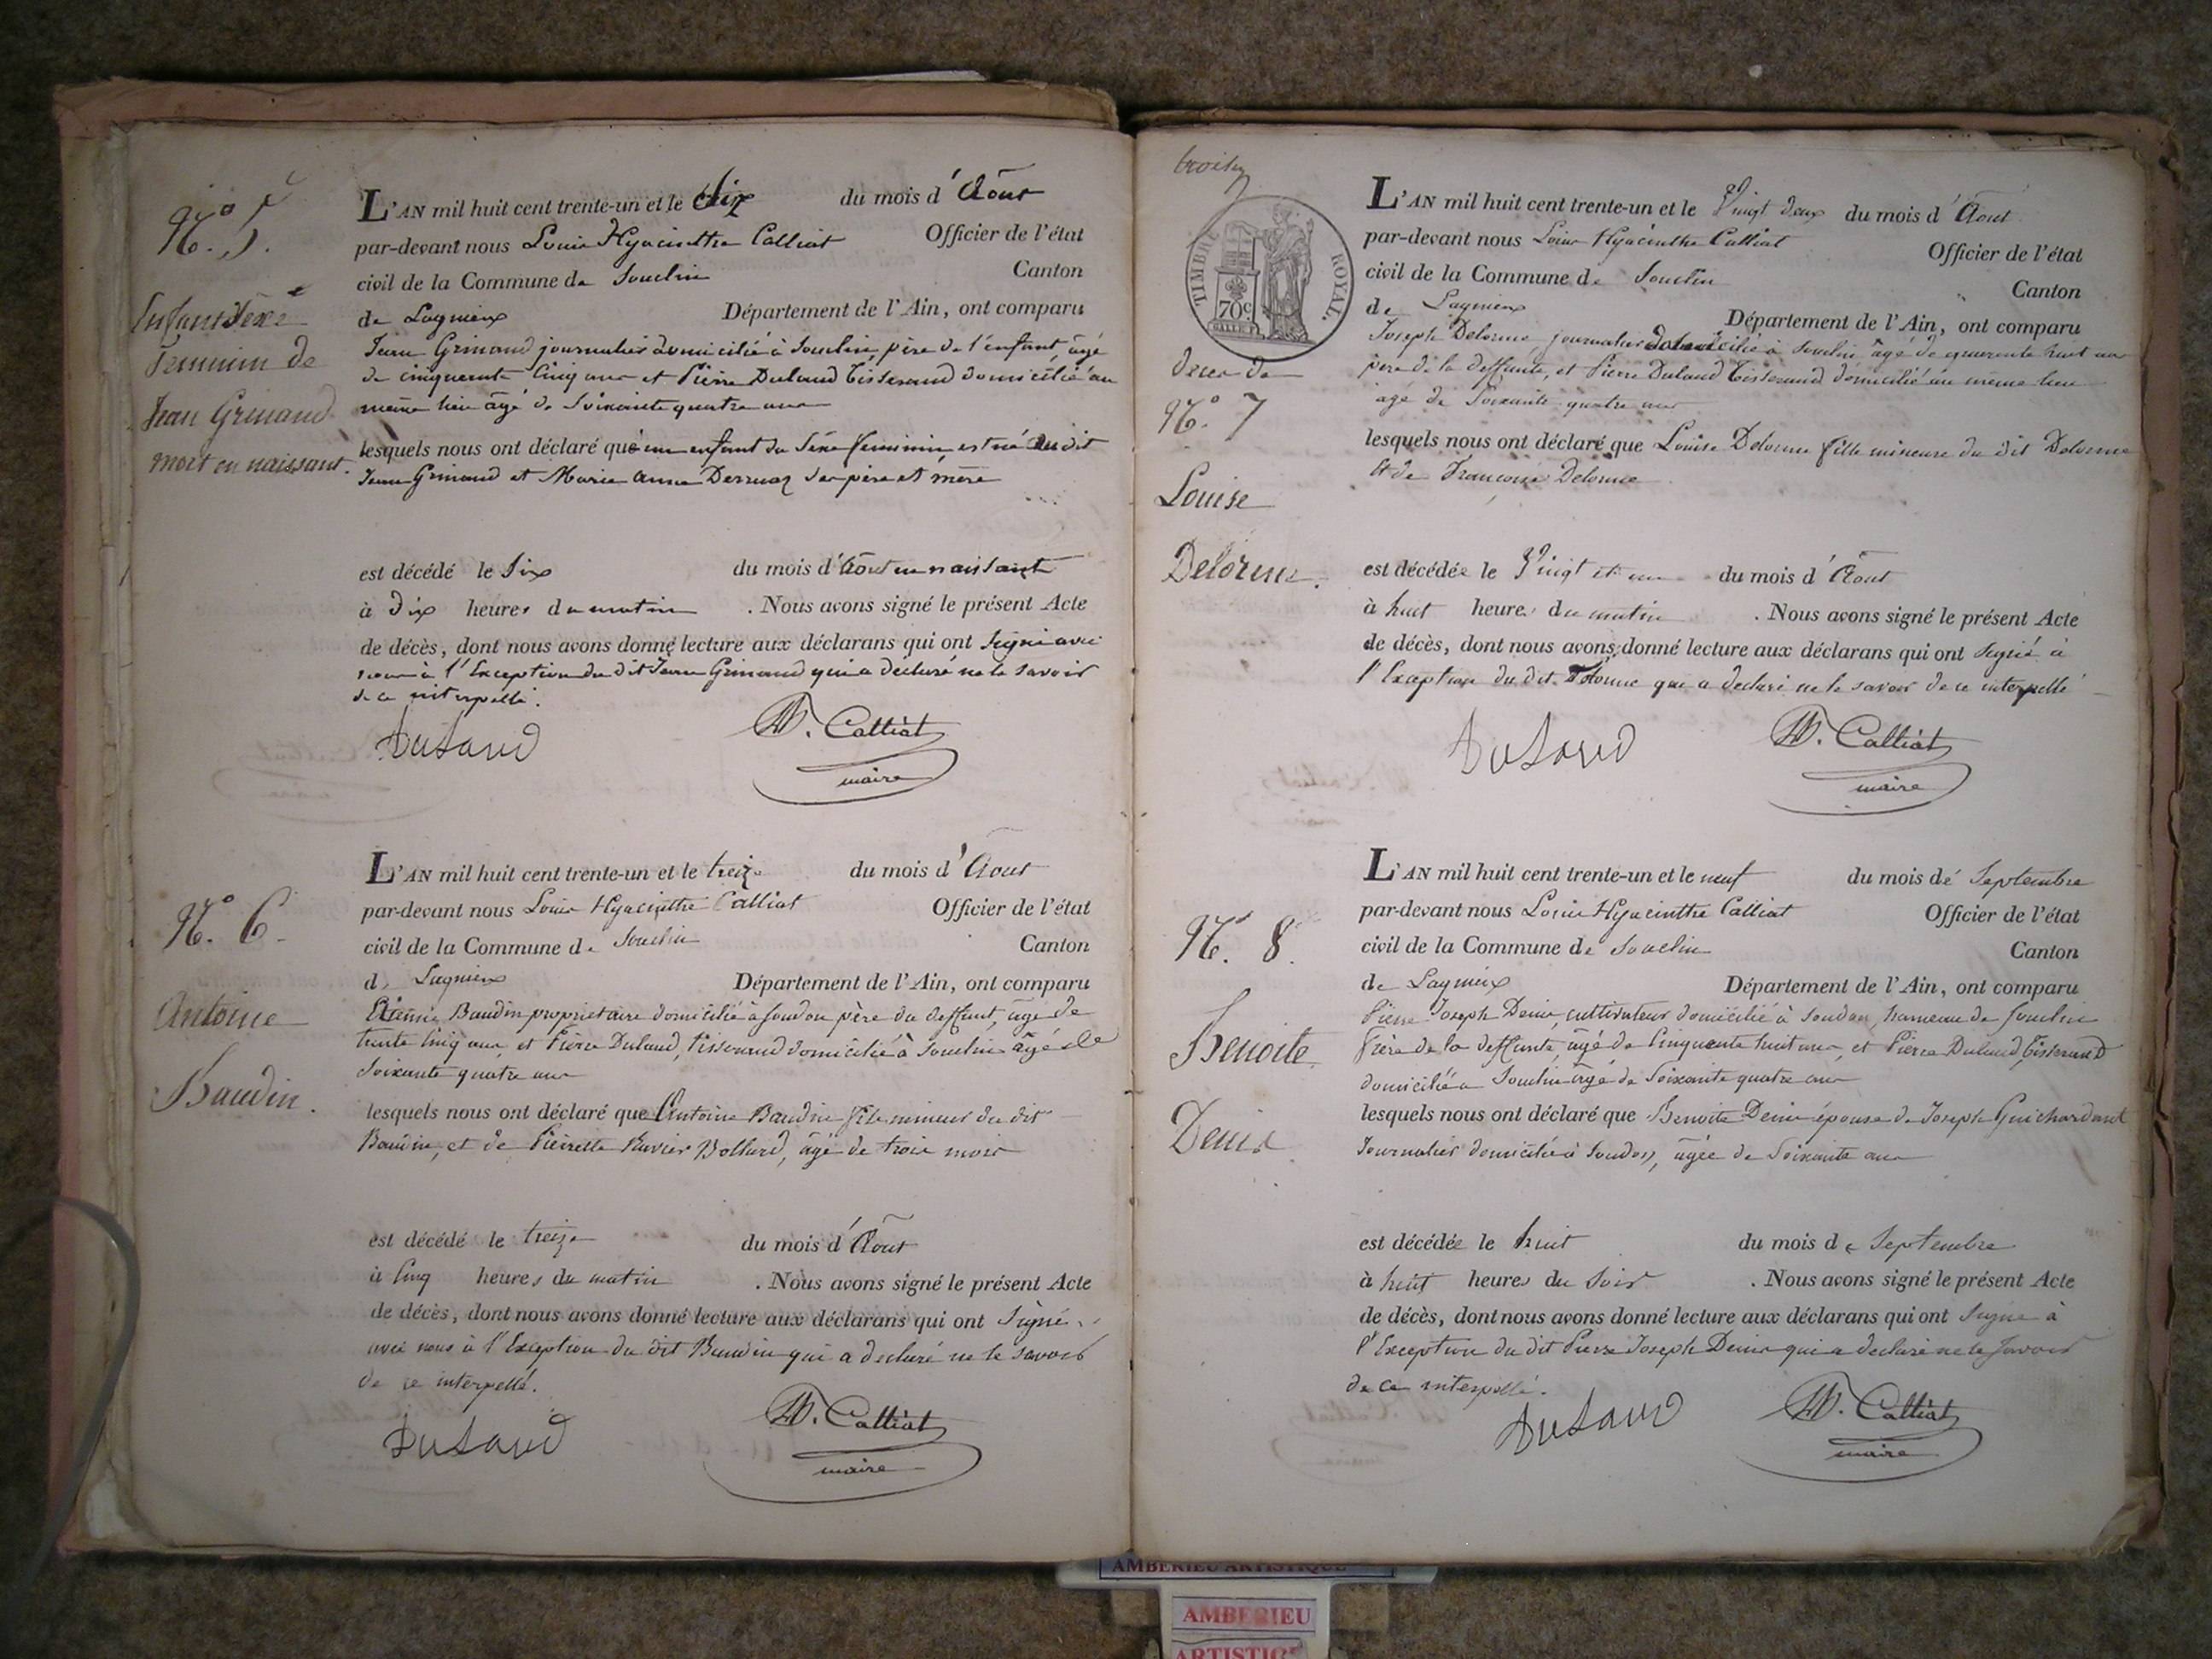 N.° 5.
Enfant Séxe
Feminin de
Jean Grinand
mort en naissant.
L'AN mil huit cent trente-un et le dix du mois d'Aout
par-devant nous Louis Hyacinthe Calliat Officier de l'état
civil de la Commune de Souclin Canton
de Lagnieux Département de l'Ain, ont comparu
Jean Grinand journalier domicilié à Souclin, père de l'enfant âgé
de cinquante cinq ans et Pierre Dulaud Tisserand domicilié au
même lieu âgé de Soixante quatre ans
lesquels nous ont déclaré que un enfant du Séxe feminin est né du dit
Jean Grinand et Marie Anne ses père et mère
est décédé le Six du mois d'Aout en naissant
à dix heures du matin . Nous avons signé le présent Acte
de décès, dont nous avons donné lecture aux déclarans qui ont signé avec
nous à l'Exception du dit Jean Grinand qui a déclaré ne le savoir
de ce interpellé.
Dulaud H. Calliat
maire
N.° 6.
Antoine
Baudin.
L'AN mil huit cent trente-un et le treize du mois d'Aout
par-devant nous Louis Hyacinthe Calliat Officier de l'état
civil de la Commune de Souclin Canton
de Lagnieux Département de l'Ain, ont comparu
Baudin proprietaire domicilié à Soudon père du deffunt, âgé de
trente cinq ans, et Pierre Dulaud, tisserand domicilié à Souclin âgé de
Soixante quatre ans
lesquels nous ont déclaré que Antoine Baudin fils mineur du dit
Baudin, et de Pierrette Ravier Bollard, âgé de trois mois
est décédé le treize du mois d'Aout
à cinq heures du matin . Nous avons signé le présent Acte
de décès, dont nous avons donné lecture aux déclarans qui ont Signé
avec nous à l'Exception du dit Baudin qui a declaré ne le savoir
de ce interpellé.
Dulaud H. Calliat
maire
TIMBRE ROYAL.
70c
deces de
N.° 7
Louise
Delorme.
L'AN mil huit cent trente-un et le Vingt deux du mois d'Aout
par-devant nous Louis Hyacinthe Calliat Officier de l'état
civil de la Commune de Souclin Canton
de Lagnieux Département de l'Ain, ont comparu
Joseph Delorme journalier domicilié à Souclin âgé de quarente huit ans
père de la deffunte, et Pierre Dulaud Tisserand domicilié au même lieu
agé de Soixante quatre ans
lesquels nous ont déclaré que Louise Delorme fille mineure du dit Delorme
et de Francoise Delorme
est décédée le Vingt et un du mois d'Aout
à huit heures du matin . Nous avons signé le présent Acte
de décès, dont nous avons donné lecture aux déclarans qui ont signé à
l'Exception du dit Delorme qui a declaré ne le savoir de ce interpellé
Dulaud H. Calliat
maire
N.° 8.
Benoite
Denis
L'AN mil huit cent trente-un et le neuf du mois de Septembre
par-devant nous Louis Hyacinthe Calliat Officier de l'état
civil de la Commune de Souclin Canton
de Lagnieux Département de l'Ain, ont comparu
Pierre Joseph Denis, cultivateur domicilié à Soudon, hameau de Souclin
frère de la deffunte, âgé de Cinquante huit ans, et Pierre Dulaud, tisserand
domicilié à Souclin âgé de Soixante quatre ans
lesquels nous ont déclaré que Benoite Denis épouse de Joseph Guichardant
Journalier domicilié à Soudon, âgée de Soixante ans
est décédée le huit du mois de Septembre
à huit heures du Soir . Nous avons signé le présent Acte
de décès, dont nous avons donné lecture aux déclarans qui ont signé à
l'Exception du dit Pierre Joseph Denis qui a declaré ne le Savoir
de ce interpellé.
Dulaud H. Calliat
maire
AMBERIEU ARTISTIQUE
AMBERIEU